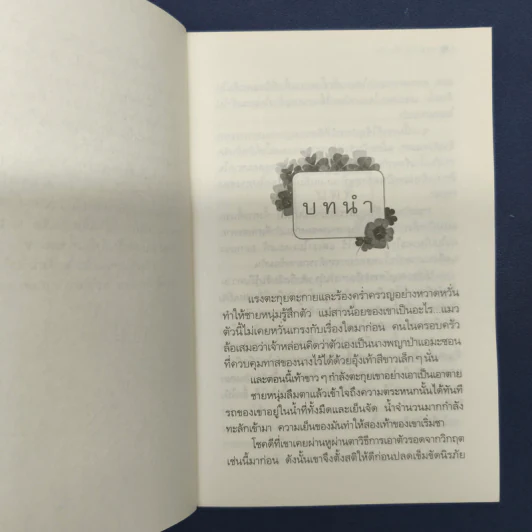 บทนำ
แรงตะกุยตะกายและร้องคร่ำครวญอย่างหวาดหวั่น
ทำให้ชายหนุ่มรู้สึกตัว แม่สาวน้อยของเขาเป็นอะไร...แมว
ตัวนี้ไม่เคยหวั่นเกรงกับเรื่องใดมาก่อน คนในครอบครัว
ล้อเสมอว่าเจ้าหล่อนคิดว่าตัวเองเป็นนางพญาป่าแอมะซอน
ที่ควบคุมทาสของนางไว้ได้ด้วยอุ้งเท้าสีขาวเล็กๆ นั่น
และตอนนี้เท้าขาวๆ กำลังตะกุยเขาอย่างเอาเป็นเอาตาย
ชายหนุ่มลืมตาแล้วเข้าใจถึงความตระหนกนั้นได้ทันที
รถของเขาอยู่ในน้ำที่ทั้งมืดและเย็นจัด น้ำจำนวนมากกำลัง
ทะลักเข้ามา ความเย็นของมันทำให้สองเท้าของเขาเริ่มชา
โชคดีที่เขาเคยผ่านหูผ่านตาวิธีการเอาตัวรอดจากวิกฤต
เช่นนี้มาก่อน ดังนั้นเขาจึงตั้งสติให้ดีก่อนปลดเข็มขัดนิรภัย